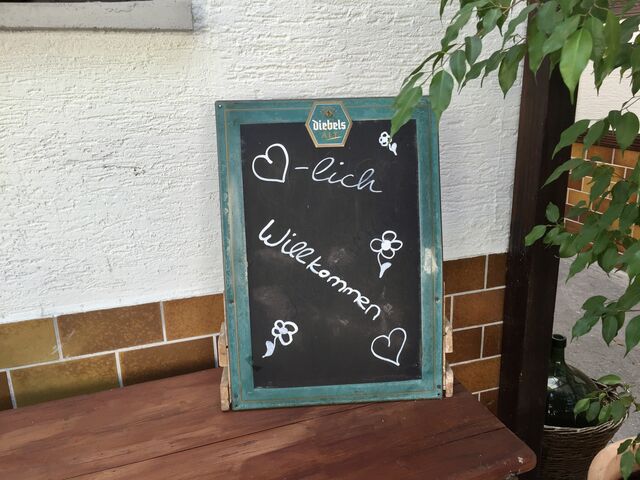 Diebels
ALT
♡-lich
Willkommen